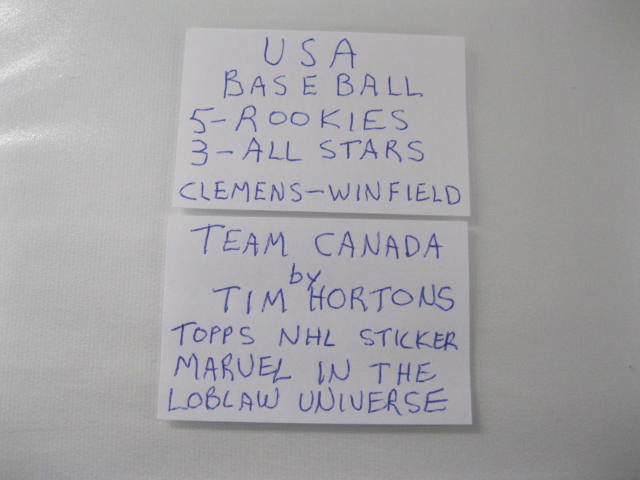 USA
BASEBALL
5-ROOKIES
3-ALL STARS
CLEMENS-WINFIELD
TEAM CANADA
by
TIM HORTONS
TOPPS NHL STICKER
MARVEL IN THE
LOBLAW UNIVERSE